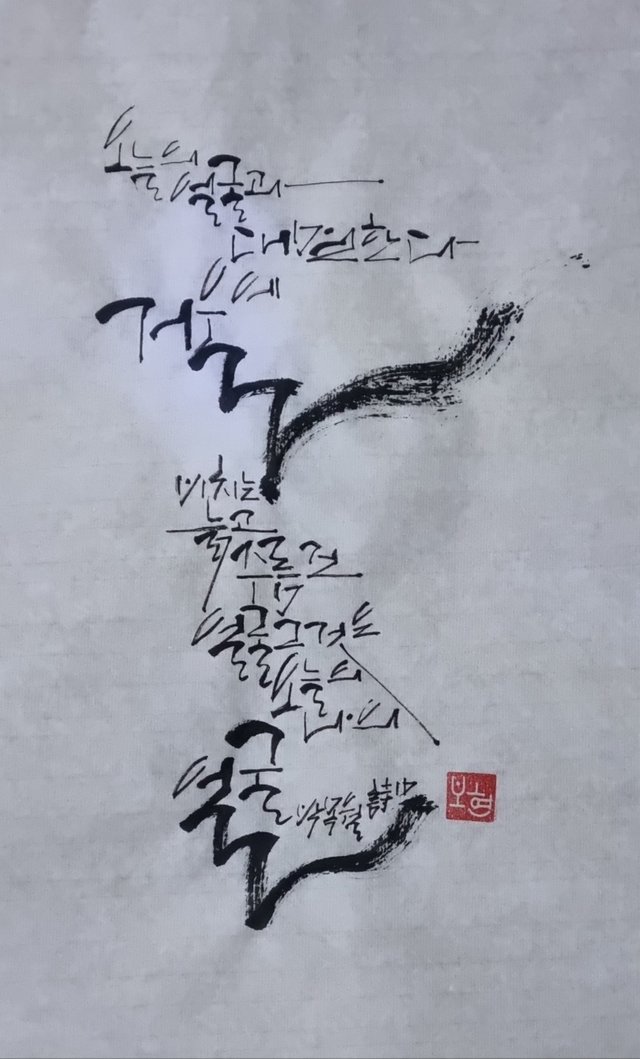 오늘의
얼굴과
대면한다
거울에
비치는
늙고
주름진
얼굴 그것은
오늘의
나의
얼굴
詩中
보현